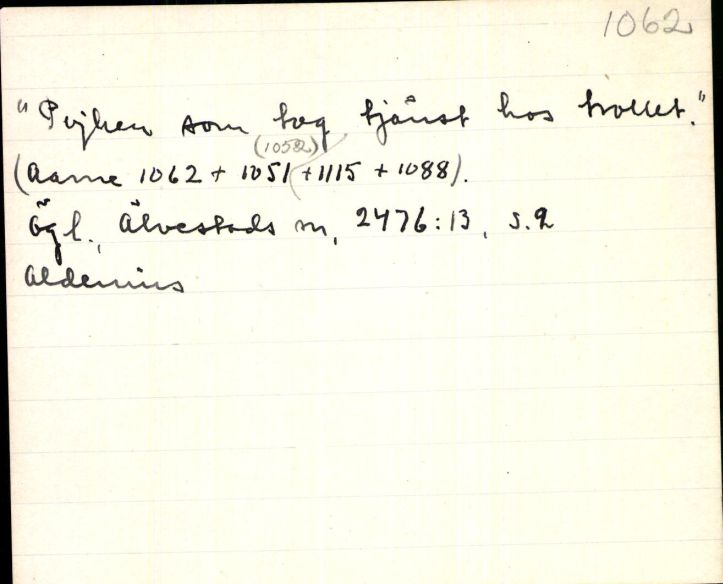 1062
"Pojken som tog tjänst hos trollet."
(1052)
(Aarne 1062 + 1051 + 1115 + 1088).
Ögl., Älvestads sn, 2476:13, s.9
Aldenius